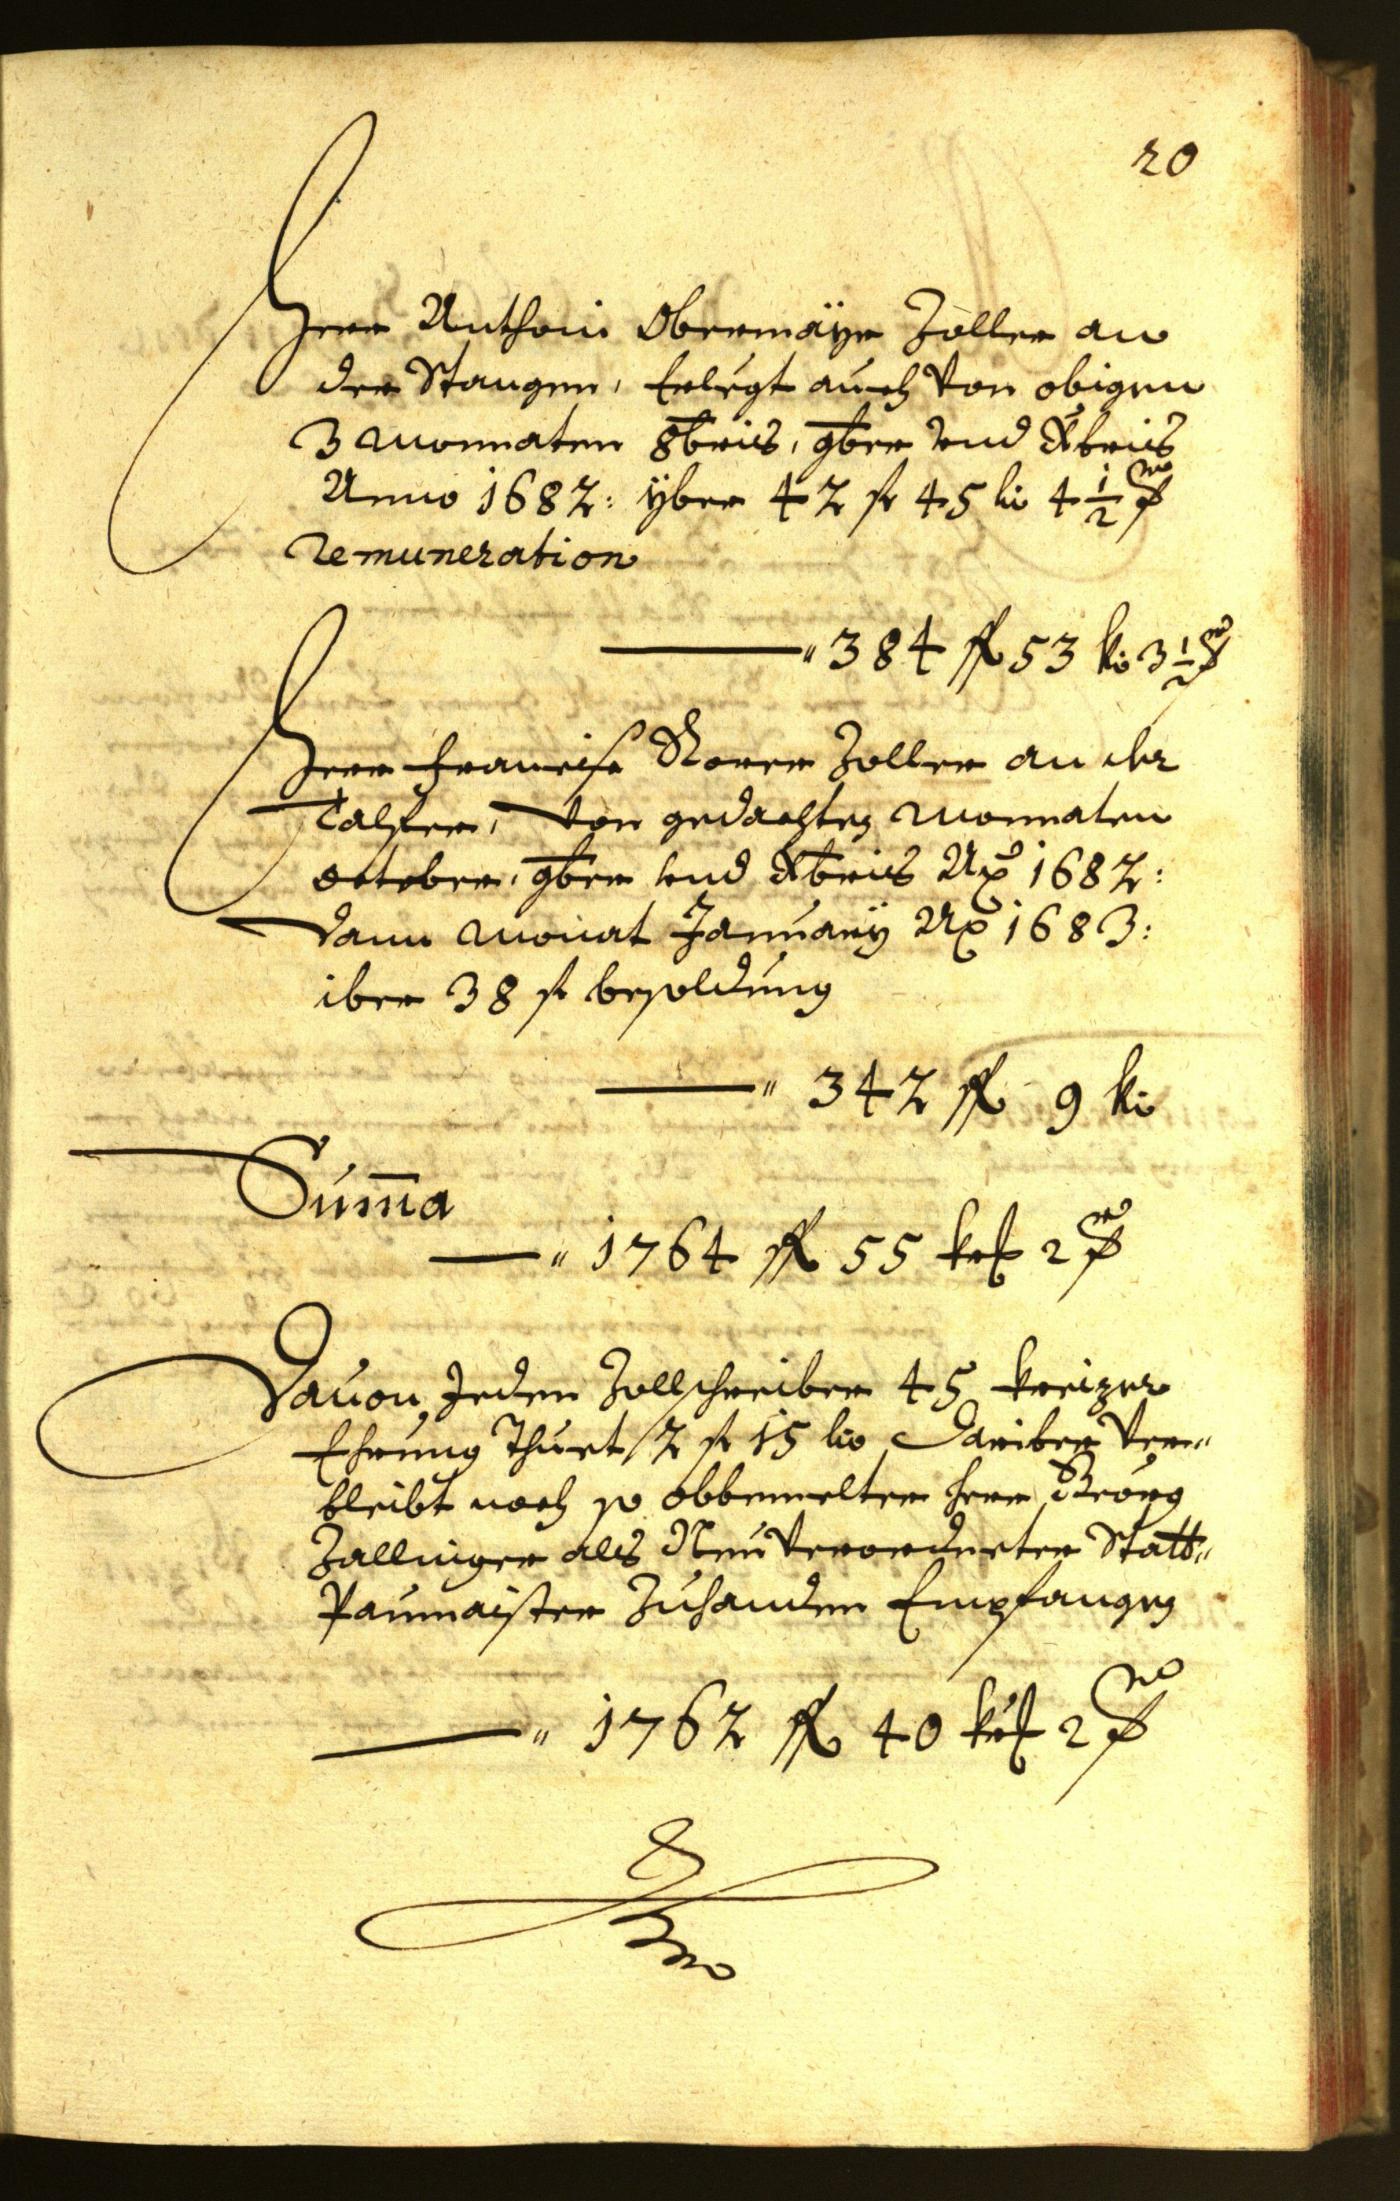 20
Herr Anthoni Obermäyr Zoller an
der Stangen, Erlegt auch von obigen
3 Monnaten 8bris, 9ber vnd Xbris
Anno 1682: yber 42 fl 45 kr 4 1/2 d
remuneration
———" 384 fl 53 kr 3 1/2 d
Herr Francisc Zoller an der
Talfer, von gedachten Monnaten
October, 9ber vnd Xbris Aō 1682:
dann Monat January Aō 1683:
iber 38 fl besoldung
———" 342 fl 9 kr
Sum̄a
——" 1764 fl 55 kr 2 d
Dauon Jedem Zollschreiber 45 kreizer
Ehrung Thuet 2 fl 15 kr Dariber ver„
bleibt noch so obbemelter Herr Geörg
Zallinger als Neu verordneter Statt„
Paumaister Zuhanden Empfangen
———" 1762 fl 40 kr 2 d